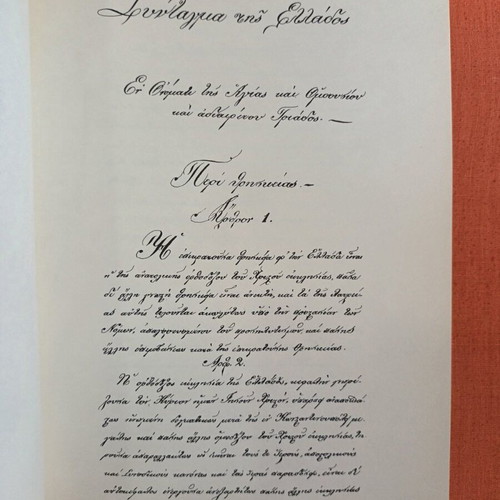 Σύνταγμα της Ελλάδος
Εν Ονόματι της Αγίας και Ομοουσίου
και αδιαιρέτου Τριάδος. —
Περί θρησκείας. —
Άρθρον 1.
Η επικρατούσα θρησκεία εις την Ελλάδα είναι
η της ανατολικής ορθοδόξου του Χριστού εκκλησίας, πάσα
δε άλλη γνωστή θρησκεία είναι ανεκτή, και τα της λατρεί-
ας αυτής τελούνται ακωλύτως υπό την προστασίαν των
Νόμων, απαγορευομένου του προσηλυτισμού, και πάσης
άλλης επεμβάσεως κατά της επικρατούσης θρησκείας.
Άρθ. 2.
Η ορθόδοξος εκκλησία της Ελλάδος, κεφαλήν γνωρί-
ζουσα τον Κύριον ημών Ιησούν Χριστόν, υπάρχει αναποσπά-
στως ηνωμένη δογματικώς μετά της εν Κωνσταντινουπόλει
μεγάλης και πάσης άλλης ομοδόξου του Χριστού εκκλησίας, τη-
ρούσα απαραλλάκτως ως εκείναι τους τε ιερούς αποστολικούς
και συνοδικούς κανόνας και τας ιεράς παραδόσεις, είναι δε
αυτοκέφαλος ενεργούσα ανεξαρτήτως πάσης άλλης εκκλησίας